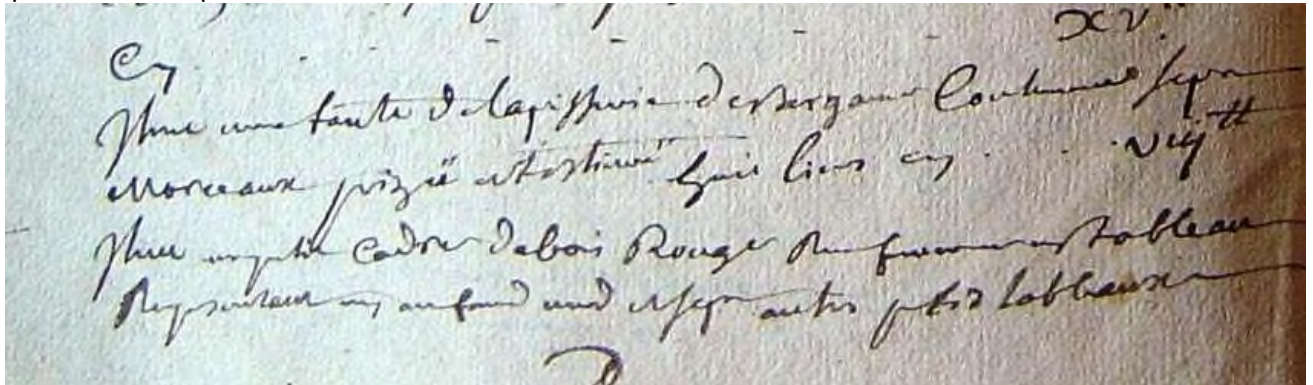 XV.tt
Cy
Plus une tante de tapisserie de Bergame Contenant sept
Morceaux prizée et estimée huit livres cy . . . viijtt
Plus un petit Cadre de bois Rouge Renfermant un tableau
Representant un enfand nud et sept autres petis tableaux